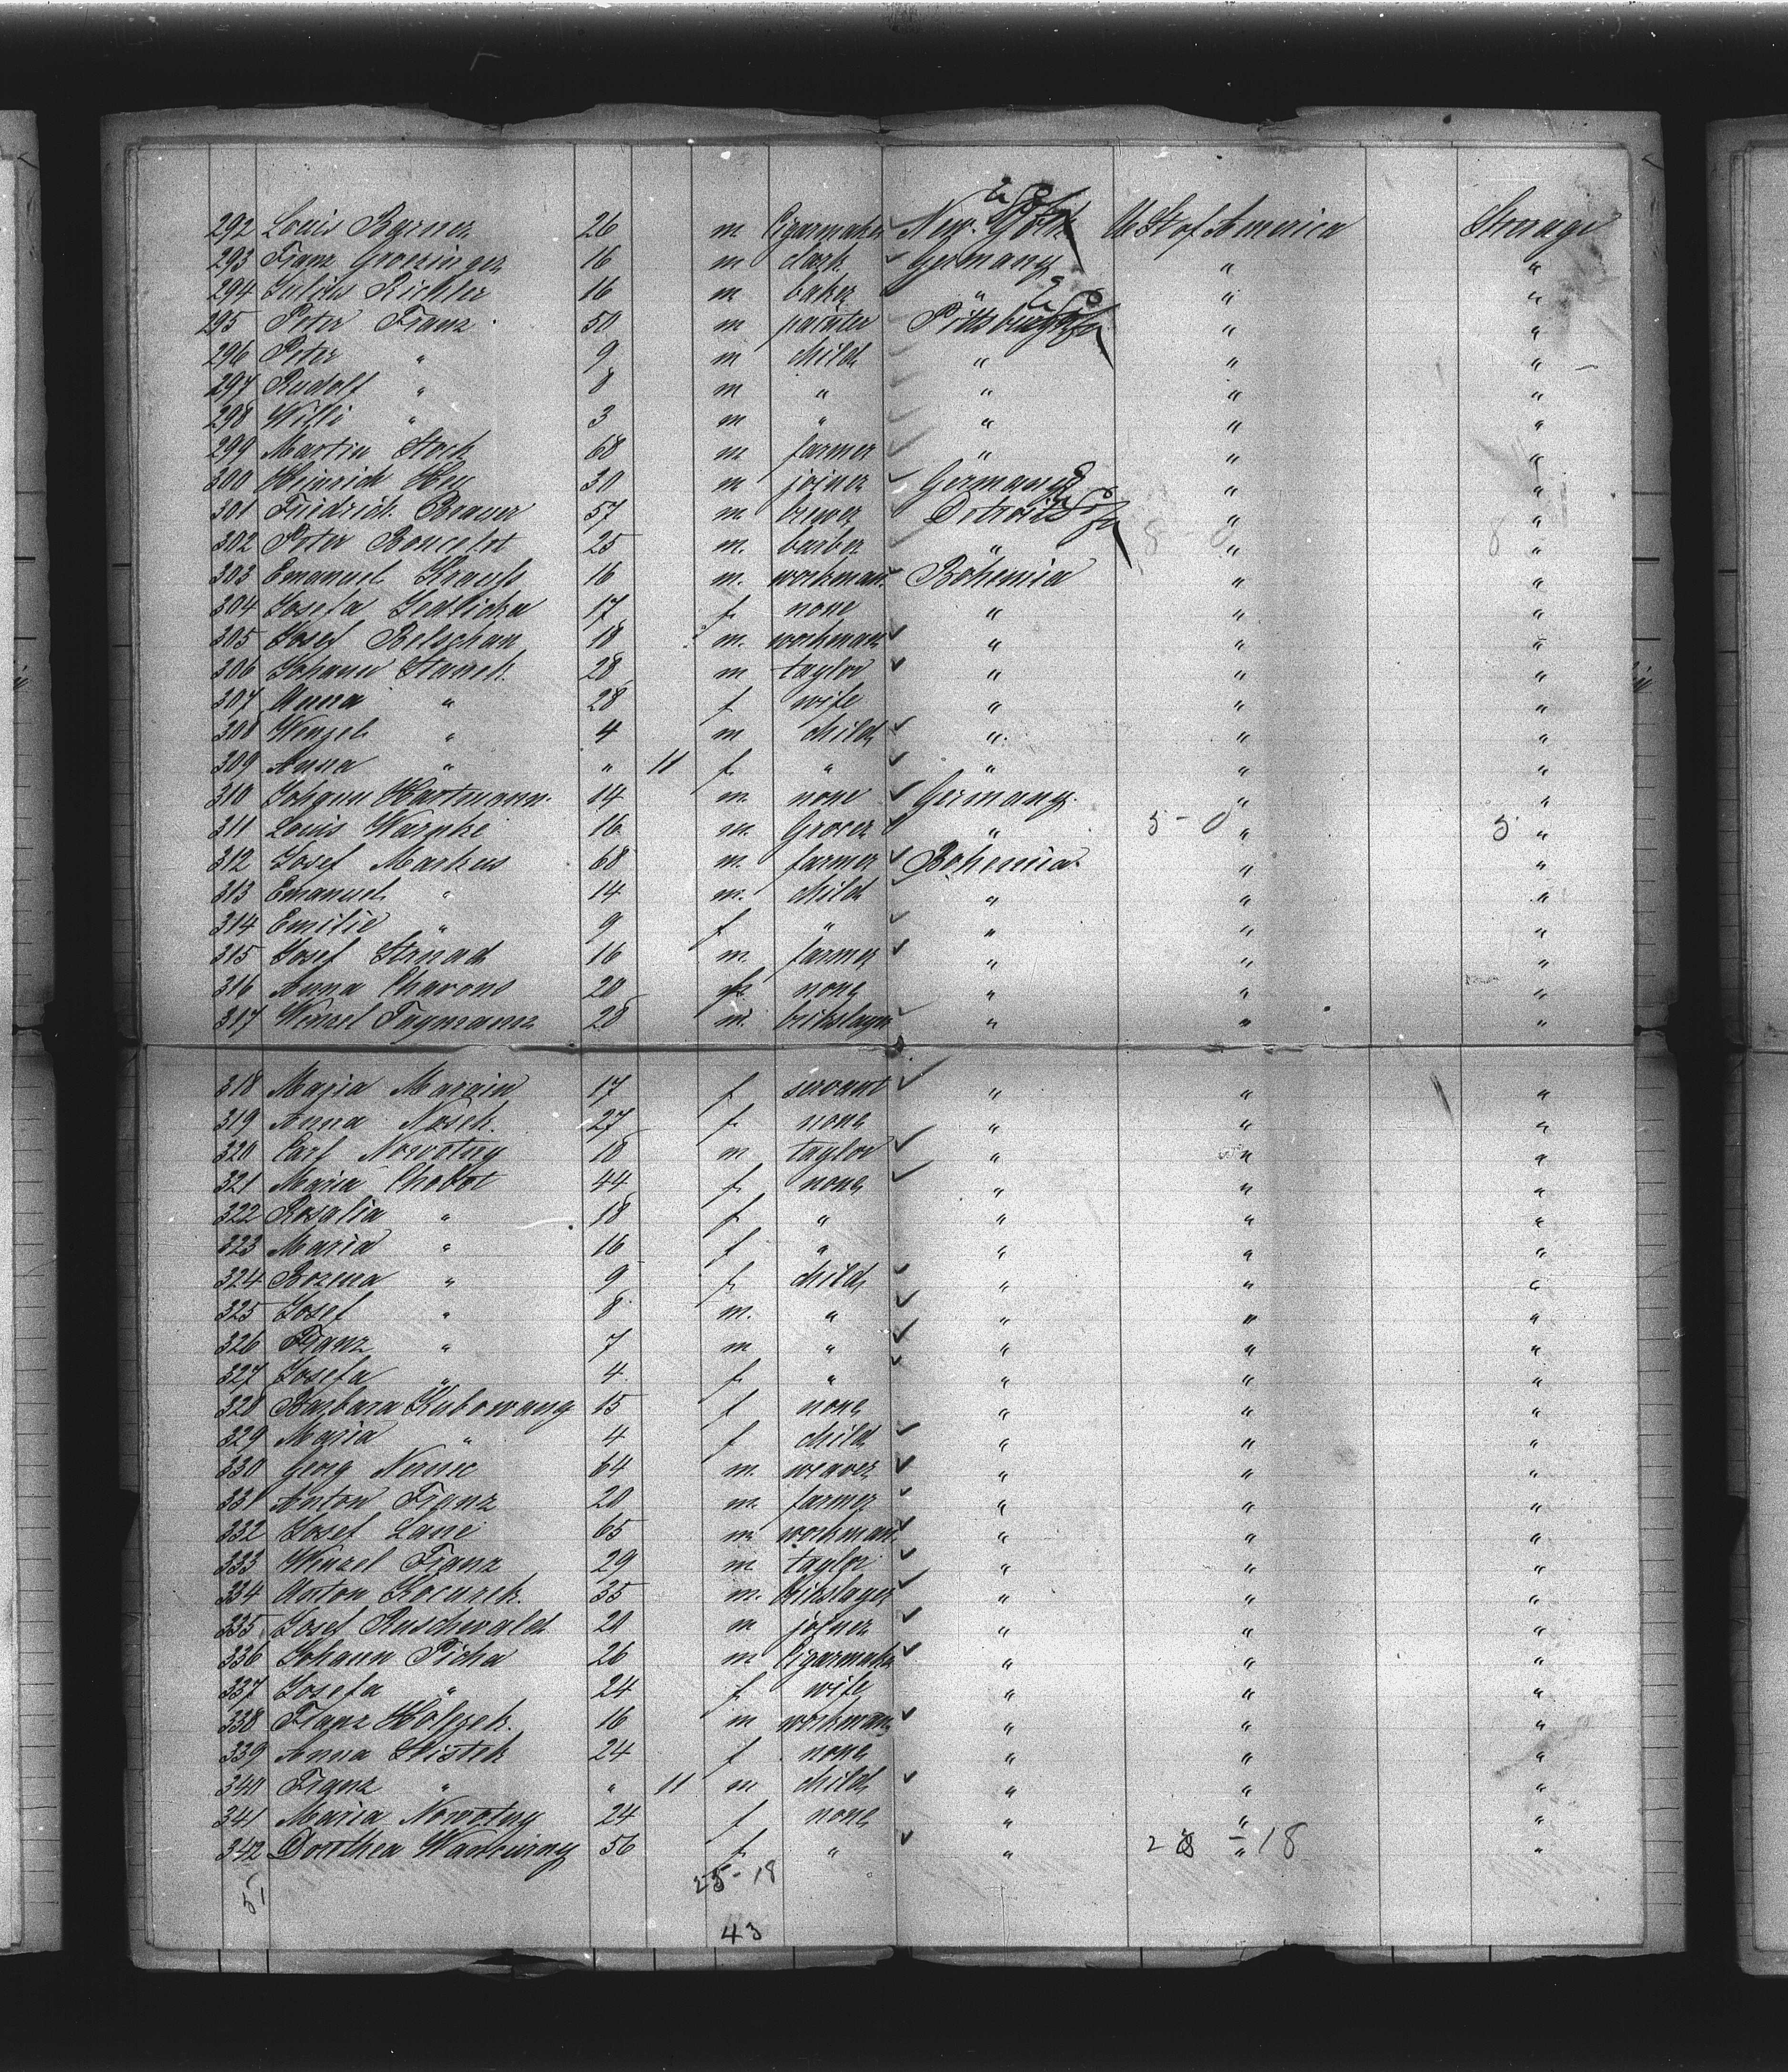 292 Louis Barner 26 m Cigarmaker New-York U.St of America Steerage
293 Franz Groezinger 16 m clark Germany " "
294 Julius Richter 16 m baker " " "
295 Peter Franz 50 m painter Pittsburg " "
296 Peter " 9 m child " " "
297 Rudolf " 8 m " " " "
298 Willi " 3 m " " " "
299 Martin Stock 68 m farmer " " "
300 Heinrich Hey 30 m joiner Germany " "
301 Friedrich Brauer 57 m. brewer Detroit " "
302 Peter 25 m. barber " 8 - 0 " 8 "
303 Emanuel Krauss 16 m. workman Bohemia " "
304 Josefa Jedlicka 17 f none " " "
305 Josef Belschan 18 m. workman " " "
306 Johann Starek 28 m taylor " " "
307 Anna " 28 f wife " " "
308 Wenzel " 4 m child " " "
309 Anna " " 11 f " " " "
310 Johann Hartmann 14 m. none Germany " "
311 Louis Warnke 16 m. Grocer " 5 - 0 " 5 "
312 Josef Markus 68 m. farmer Bohemia " "
313 Emanuel " 14 m. child " " "
314 Emilie " 9 f " " " "
315 Josef Strnad 16 m. farmer " " "
316 Anna 20 f none " " "
317 Wenzel 28 m. " " "
318 Maria 17 f servant " " "
319 Anna Nosek 27 f none " " "
320 Carl Nowotny 18 m taylor " " "
321 Maria Chobot 44 f none " " "
322 Rosalia " 18 f " " " "
323 Maria " 16 f " " " "
324 Bozena " 9 f child " " "
325 Josef " 8 m. " " " "
326 Franz " 7 m " " " "
327 Josefa " 4 f " " " "
328 Barbara Kubowang 15 f none " " "
329 Maria " 4 f child " " "
330 Georg Nemec 64 m. weaver " " "
331 Anton Franz 20 m. farmer " " "
332 Josef Lane 65 m workman " " "
333 Wenzel Franz 29 m taylor " " "
334 Anton Kocurek 35 m. brikslager " " "
335 Josef Ruschwald 20 m joiner " " "
336 Johann Picha 26 m Cigarmaker " " "
337 Josefa " 24 f wife " " "
338 Franz 16 m workman " " "
339 Anna 24 f none " " "
340 Franz " " 11 m child " " "
341 Maria Nowotny 24 f none " " "
342 Dorothea 56 f " " 28 - 18 " "
51 25-18
43